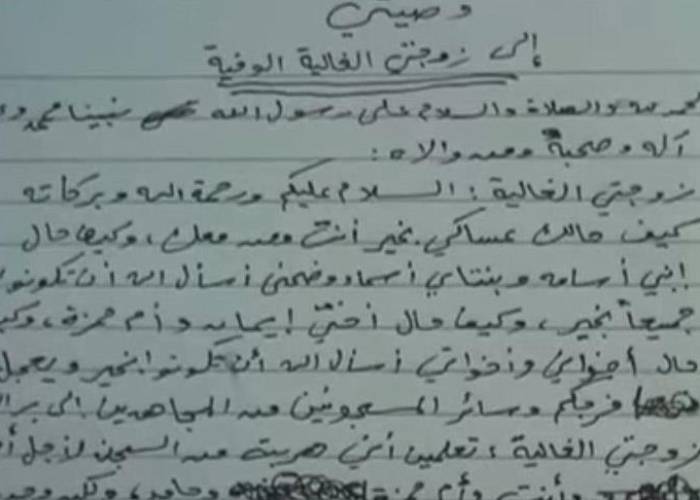 وصيتي
إلى زوجتي الغالية الوفية
لله والصلاة والسلام على رسول الله نبينا محمد
آله وصحبه ومن والاه :
زوجتي الغالية : السلام عليكم ورحمة الله وبركاته
كيف حالك عساكي بخير أنت ومن معك ، وكيف حال
إبني أسامه وبنتاي أسماء وضحى أسأل الله أن تكونوا
جميعاً بخير ، وكيف حال أختي إيمان وأم حمزة ،
حال أخواي وأخواتي أسأل الله أن تكونوا بخير ويعجل
فرجكم وسائر المسجونين من المجاهدين إلى
زوجتي الغالية ، تعلمين أنني هربت من السجن لأجل
أنت وأم حمزة وحامد ،